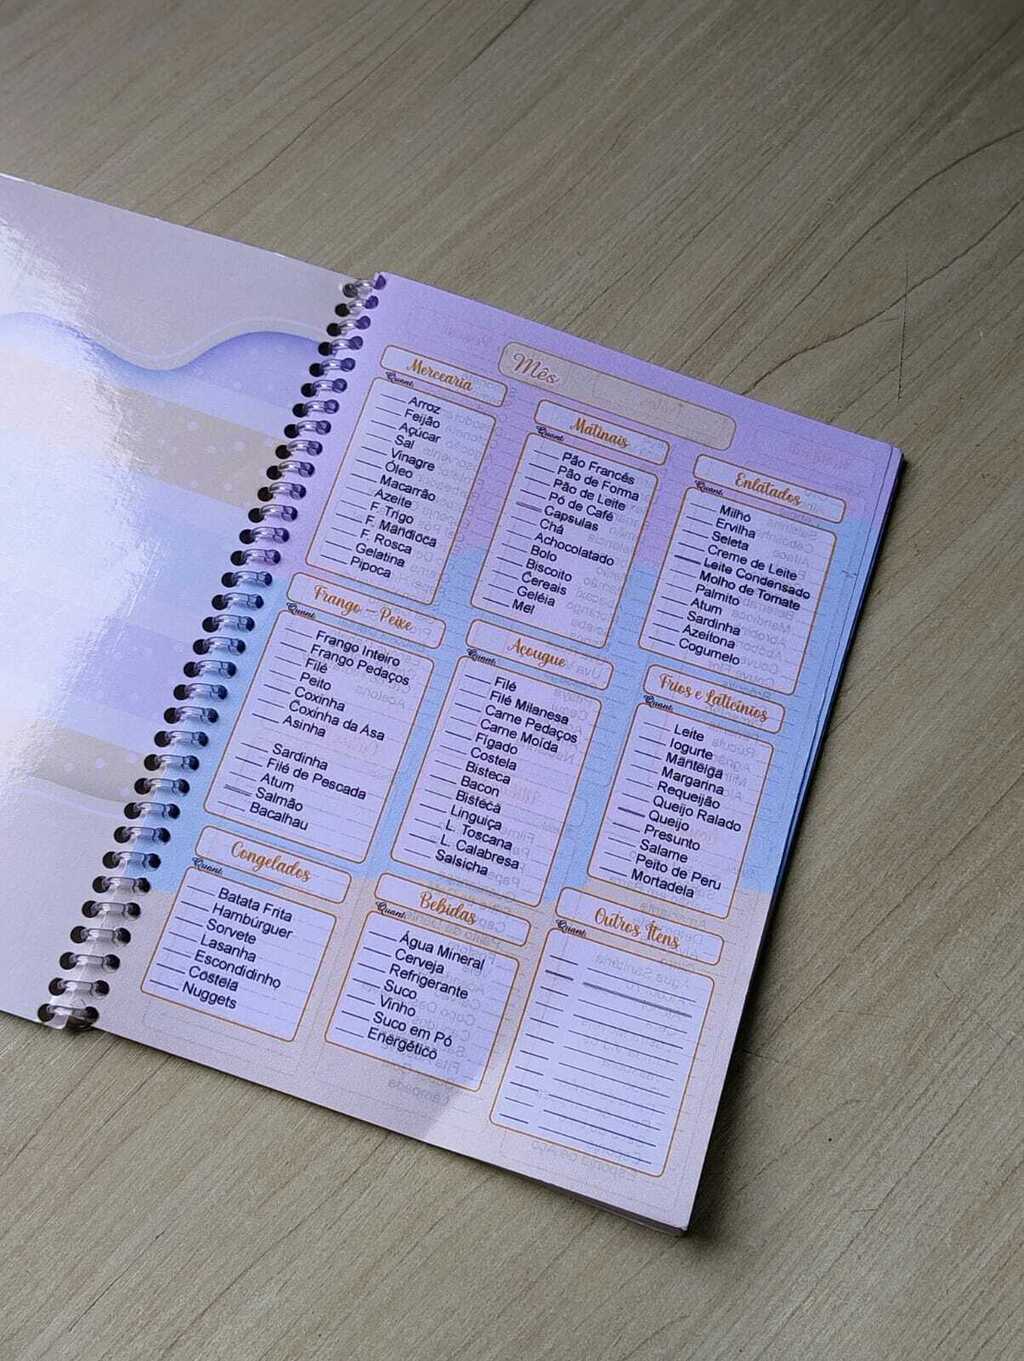 Mês
Mercearia
Quant.
Arroz
Feijão
Açúcar
Sal
Vinagre
Óleo
Macarrão
Azeite
F. Trigo
F. Mandioca
F. Rosca
Gelatina
Pipoca
Matinais
Quant.
Pão Francês
Pão de Forma
Pão de Leite
Pó de Café
Capsulas
Chá
Achocolatado
Bolo
Biscoito
Cereais
Geléia
Mel
Enlatados
Quant.
Milho
Ervilha
Seleta
Creme de Leite
Leite Condensado
Molho de Tomate
Palmito
Atum
Sardinha
Azeitona
Cogumelo
Frango - Peixe
Quant.
Frango Inteiro
Frango Pedaços
Filé
Peito
Coxinha
Coxinha da Asa
Asinha
Sardinha
Filé de Pescada
Atum
Salmão
Bacalhau
Açougue
Quant.
Filé
Filé Milanesa
Carne Pedaços
Carne Moída
Fígado
Costela
Bisteca
Bacon
Bisteca
Linguiça
L. Toscana
L. Calabresa
Salsicha
Frios e Laticínios
Quant.
Leite
Iogurte
Manteiga
Margarina
Requeijão
Queijo Ralado
Queijo
Presunto
Salame
Peito de Peru
Mortadela
Congelados
Quant.
Batata Frita
Hambúrguer
Sorvete
Lasanha
Escondidinho
Costela
Nuggets
Bebidas
Quant.
Água Mineral
Cerveja
Refrigerante
Suco
Vinho
Suco em Pó
Energético
Outros Itens
Quant.